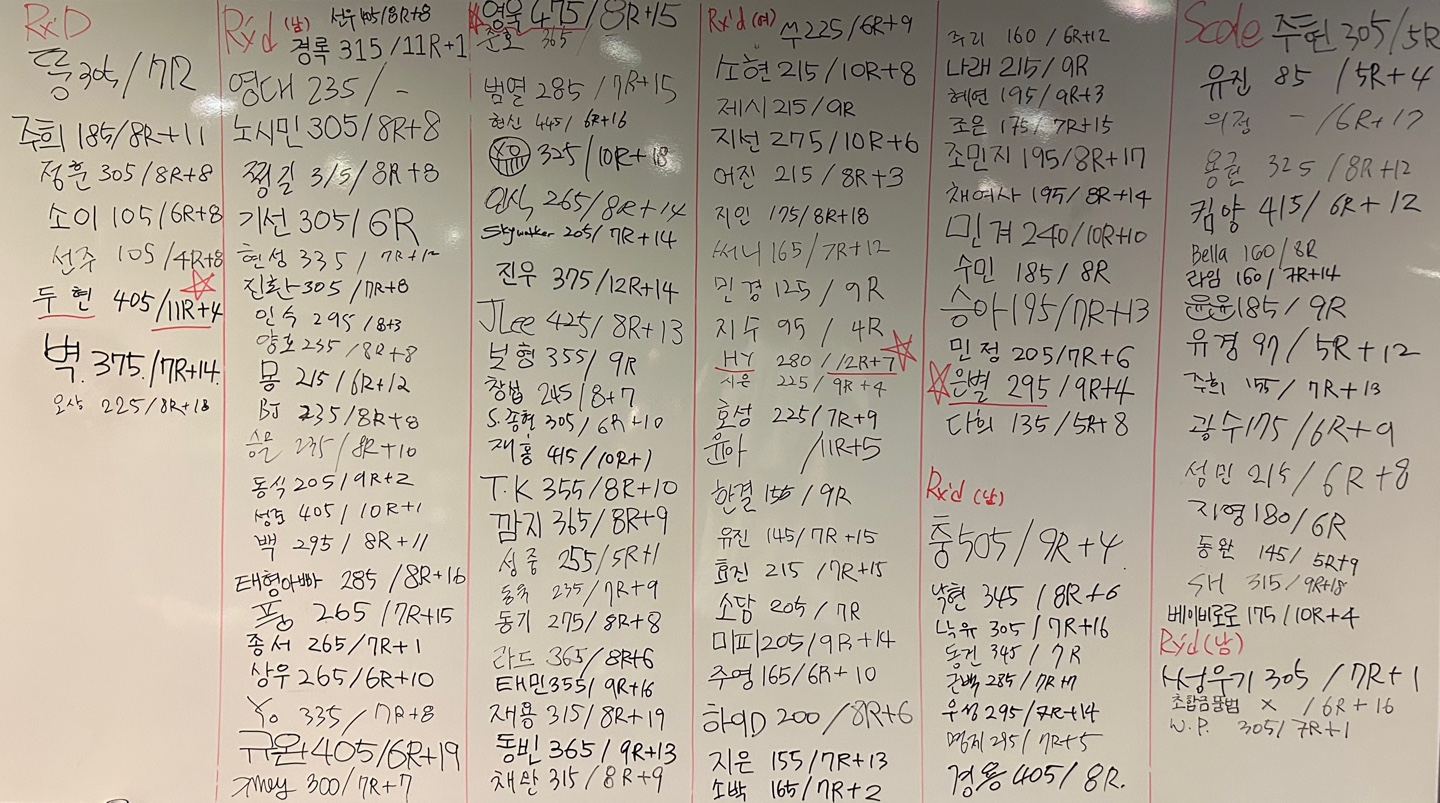 RxD
305/7R
주희 185/8R+11
정훈 305/8R+8
소이 105/6R+8
선주 105/4R+8
두현 405/11R+4
벽 375/7R+14
오상 225/8R+18
Rx'd (남) 선우 405/8R+8
경록 315/11R+1
영대 235/-
노시민 305/8R+8
찡길 315/8R+8
기선 305/6R
현성 335/7R+12
진환 305/7R+8
인숙 295/8+3
양호 235/8R+8
몽 215/6R+12
BJ 235/8R+8
승은 235/8R+10
동식 205/9R+2
성도 405/10R+1
백 295/8R+11
태형아빠 285/8R+16
265/7R+15
종서 265/7R+1
상우 265/6R+10
Yo 335/7R+8
규완 405/6R+19
Jmey 300/7R+7
영욱 475/8R+15
준호 365
범열 285/7R+15
현신 445/6R+16
325/10R+18
임식 265/8R+14
Skywalker 205/7R+14
진우 375/12R+14
JLee 425/8R+13
보형 355/9R
창섭 245/8+7
S.종현 305/6R+10
재홍 415/10R+1
T.K 355/8R+10
깜지 365/8R+9
성중 255/5R+1
동욱 235/7R+9
동기 275/8R+8
라드 365/8R+6
태민 355/9R+16
재용 315/8R+19
동빈 365/9R+13
채완 315/8R+9
Rx'd (여) 쑤 225/6R+9
소현 215/10R+8
제시 215/9R
지선 275/10R+6
어진 215/8R+3
지인 175/8R+18
써니 165/7R+12
민경 125/9R
지수 95/4R
HY 280/12R+7
시은 225/9R+4
호성 225/7R+9
윤아 /11R+5
한결 155/9R
유진 145/7R+15
효진 215/7R+15
소담 205/7R
미피 205/9R+14
주영 165/6R+10
하이D 200/8R+6
지은 155/7R+13
소박 165/7R+2
주리 160/6R+12
나래 215/9R
혜연 195/9R+3
조은 175/7R+15
조민지 195/8R+17
채여사 195/8R+14
민겨 240/10R+10
수민 185/8R
승아 195/7R+13
민정 205/7R+6
은별 295/9R+4
다희 135/5R+8
Rx'd (남)
충 505/9R+4
낙현 345/8R+6
낙유 305/7R+16
동건 345/7R
근백 285/7R+7
우성 295/7R+14
명제 295/7R+5
경용 405/8R.
Scale 주현 305/5R
유진 85/5R+4
의정 -/6R+17
용권 325/8R+12
킴양 415/6R+12
Bella 160/8R
라임 160/7R+14
윤윤 185/9R
유경 97/5R+12
주희 155/7R+13
광수 175/6R+9
성민 215/6R+8
지영 180/6R
동완 145/5R+9
SH 315/9R+18
베이비로로 175/10R+4
Rx'd (남)
서성우기 305/7R+1
초합금 X /6R+16
W.P. 305/7R+1